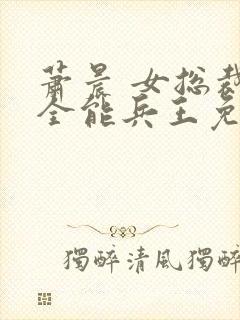 萧晨 女总裁
全能兵王免
獨醉清風獨醉